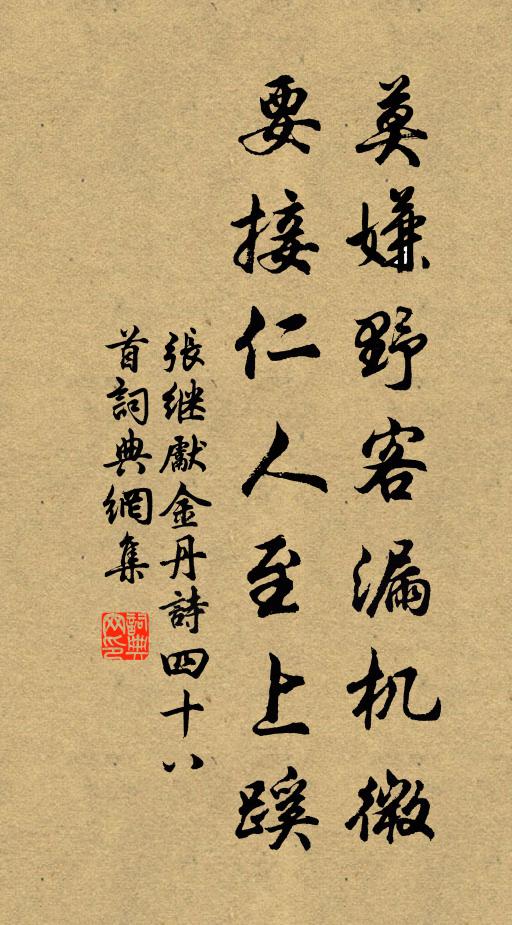 莫嫌野客漏机微
要接仁人至上蹊
張继獻金丹詩四十八
首詞典網集
詞典網印